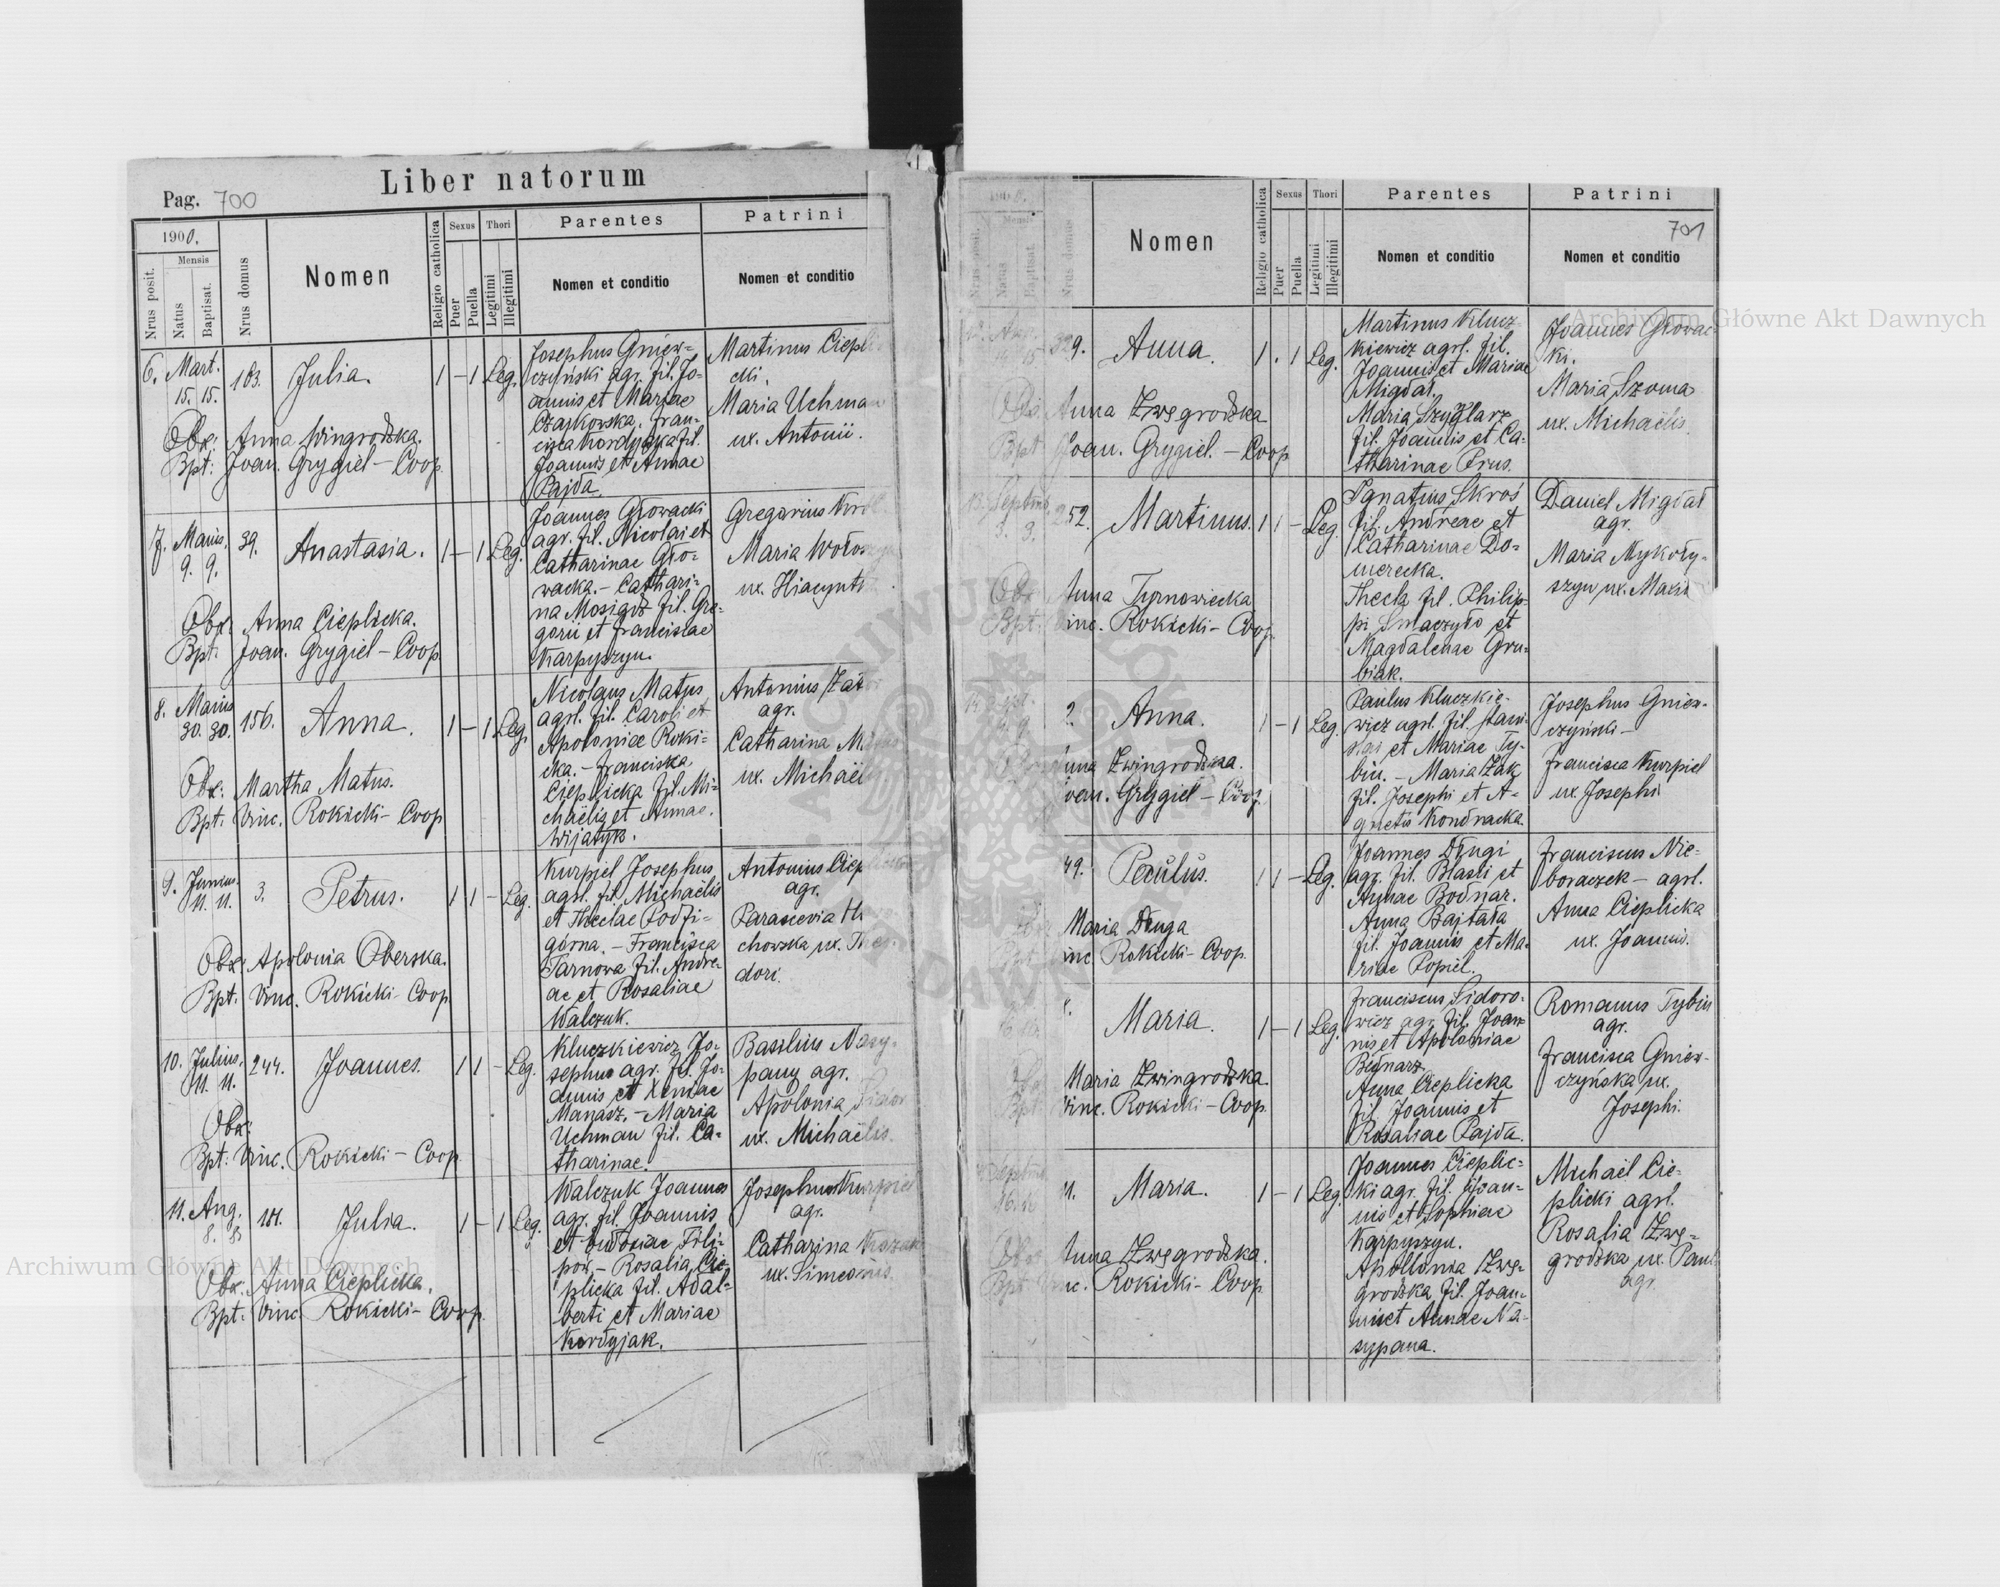 Liber natorum
Pag. 700
1900.
Nrus posit.
Mensis
Natus
Baptisat.
Nrus domus
Nomen
Religio catholica
Sexus
Puer
Puella
Thori
Legitimi
Illegitimi
Parentes
Nomen et conditio
Patrini
Nomen et conditio
6. Mart. 183. Julia. 1 – 1 Leg.
15. 15.
Obx: Anna Wingrodzka.
Bpt: Joan. Grygiel – Coop.
Josephus Gniew-
czyński agr. fil. Jo-
annis et Mariae
Czajkowska. Fran-
cisca Kordyjaka fil.
Joannis et Annae
Pajda.
Martinus Ciepli
cki.
Maria Uchman
ux. Antonii.
7. Maius. 39. Anastasia. 1 – 1 Leg.
9. 9.
Obx: Anna Cieplicka.
Bpt: Joan. Grygiel – Coop.
Joannes Głowacki
agr. fil. Nicolai et
Catharinae Gło-
wacka. – Cathari-
na Mosigdz fil. Gre-
gorii et Franciscae
Karpyszyn.
Gregorius Król
Maria Wołoszyn
ux. Hiacynti
8. Maius 156. Anna. 1 – 1 Leg.
30. 30.
Obx: Martha Matus.
Bpt: Vinc. Rokicki – Coop
Nicolaus Matus
agrl. fil. Caroli et
Apoloniae Roki-
cka. – Francisca
Cieplicka fil. Mi-
chaëlis et Annae
Wijatyk.
Antonius
agr.
Catharina
ux. Michaël
9. Junius. 3. Petrus. 1 1 – Leg.
11. 11.
Obx: Apolonia Oberska.
Bpt: Vinc. Rokicki – Coop.
Kurpiel Josephus
agrl. fil. Michaëlis
et Theclae Podfi-
górna. – Francisca
Tarnowa fil. Andre-
ae et Rosaliae
Walczuk.
Antonius Ciep
agr.
Parascevia
chowska ux. Theo
dori.
10. Julius. 244. Joannes. 1 1 – Leg.
11. 11.
Obx:
Bpt: Vinc. Rokicki – Coop.
Kluczkiewicz Jo-
sephus agr. fil. Jo-
annis et Xeniae
Manasz. – Maria
Uchman fil. Ca-
tharinae.
Basilius Nasy-
pany agr.
Apolonia
ux. Michaëlis.
11. Aug. 181. Julia. 1 – 1 Leg.
8. 8.
Obx: Anna Cieplicka.
Bpt: Vinc. Rokicki – Coop.
Walczuk Joannes
agr. fil. Joannis
et Eudoxiae Fili-
pow. – Rosalia Cie-
plicka fil. Adal-
berti et Mariae
Kordyjak.
Josephus Kurpiel
agr.
Catharina Kozak
ux. Simeonis.
Nomen
Religio catholica
Sexus
Puer
Puella
Thori
Legitimi
Illegitimi
Parentes
Nomen et conditio
Patrini
701
Nomen et conditio
Anna. 1 . 1 Leg.
Anna Zwęgrodzka
Bpt Joan. Grygiel. – Coop
Martinus Klucz-
kiewicz agrl. fil.
Joannis et Mariae
Migdał.
Maria Szyglarz
fil. Joannis et Ca-
tharinae Prus.
Joannes Głowac-
ki.
Maria Szoma
ux. Michaëlis.
252. Martinus. 1 1 – Leg.
Anna Tyrnowiecka
Bpt: Vinc. Rokicki – Coop.
Ignatius Skroś
fil. Andreae et
Catharinae Do-
merecka.
Thecla fil. Philip-
pi Smaczyło et
Magdalenae Gru-
biak.
Daniel Migdał
agr.
Maria Mykoły-
szyn ux.
2. Anna. 1 – 1 Leg.
Anna Zwingrodzka.
Joan. Grygiel – Coop.
Paulus Kluczkie-
wicz agrl. fil. Stani-
slai et Mariae Ty-
bin. – Maria Żak
fil. Josephi et A-
gnetis Kondracka.
Josephus Gniew-
czyński –
Francisca Kurpiel
ux. Josephi
49. Paulus. 1 1 – Leg.
Maria Długa
Vinc Rokicki – Coop.
Joannes Długi
agr. fil. Blasii et
Annae Bodnar.
Anna Bajtała
fil. Joannis et Ma-
riae Popiel.
Franciscus Nie-
boraczek – agrl.
Anna Cieplicka
ux. Joannis.
Maria. 1 – 1 Leg.
Maria Zwingrodzka.
Vinc. Rokicki – Coop.
Franciscus Sidoro-
wicz agr. fil. Joan-
nis et Apoloniae
Bednarz.
Anna Cieplicka
fil. Joannis et
Rosaliae Pajda.
Romanus Tybin
agr.
Francisca Gniew-
czyńska ux.
Josephi.
Maria. 1 – 1 Leg.
Anna Zwęgrodzka.
Rokicki – Coop
Joannes Cieplic-
ki agr. fil. Joan-
nis et Sophiae
Karpyszyn.
Apollonia Zwę-
grodzka fil. Joan-
nis et Annae Na-
sypana.
Michaël Cie-
plicki agrl.
Rosalia Zwę-
grodzka ux. Pauli
agr.
Archiwum Główne Akt Dawnych
Archiwum Główne Akt Dawnych